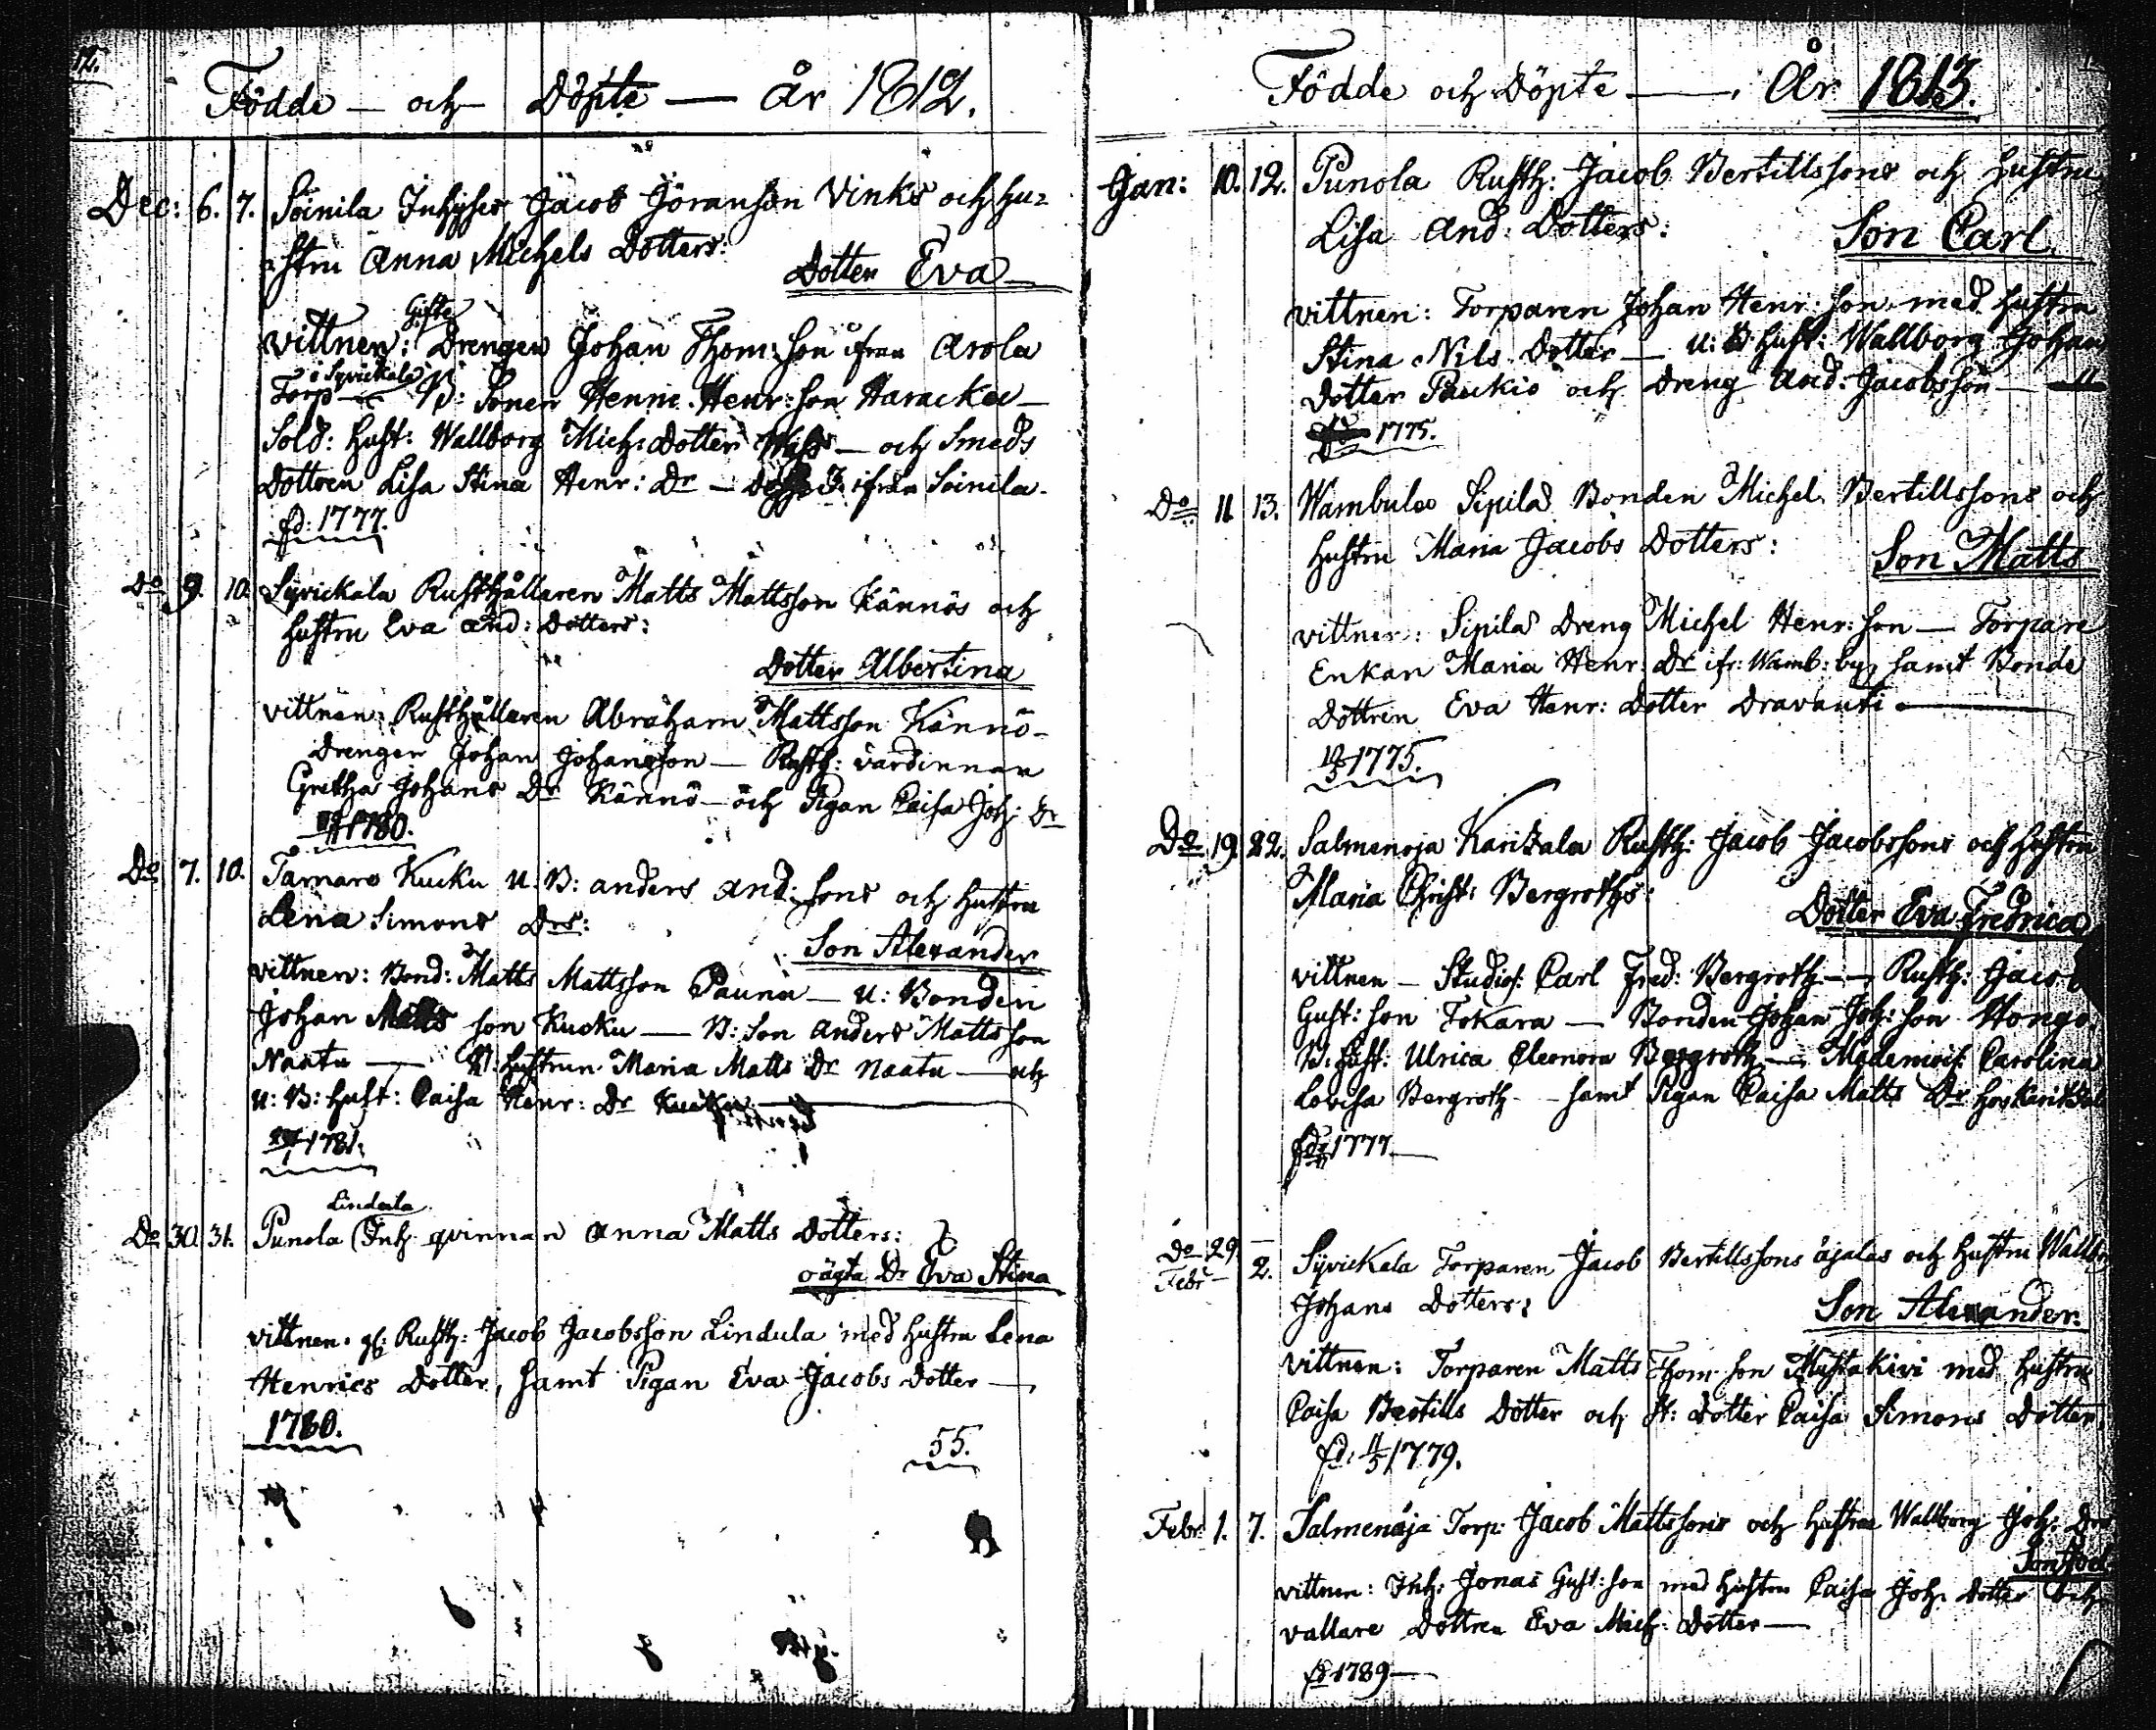 12.
Födde — och Döpte — År 1812.
Dec: 6. 7. Soinila Inhyses Jacob Göranson Vinks och hu=
stru Anna Michels Dotters:
Dotter Eva
Gifte
vittnen: Drengen Johan Thom: Son ifrån Arola
i Syrickala
Torp — B: Sonen Henric Henr: son
Sold: Hust: Wallborg Mich: Dotter — och Smeds
Dottren Lisa Stina Henr: Dr — ifrån Soinila.
fd: 1777.
Do 9. 10. Syrickala Rusthållaren Matts Mattsson Kännös och
Hustru Eva And: Dotters:
Dotter Albertina
vittnen: Rusthållaren Abraham Mattsson Kännö —
Drengen Johan Johansson — Rusth: värdinnan
Gretha Johans Dr Kännö — och Pigan Caisa Joh: Dr
1780.
Do 7. 10. Tamare Kucku U: B: Anders And: sons och Hustru
Lena Simons Drs:
Son Alexander
vittnen: Bond: Matts Mattsson Pauna — U: Bonden
Johan Matts son Kucku — B: Son Anders Mattsson
Naatu — B: Hustrun Maria Matts Dr Naatu — och
U: B: Hust: Caisa Henr: Dr Kucku —
1781.
Lindula
Do 30. 31. Punola Inh: qvinnan Anna Matts Dotters:
oägta Dr Eva Stina
vittnen. gl: Rusth: Jacob Jacobsson Lindula med Hustru Lena
Henrics Dotter, samt Pigan Eva Jacobs Dotter —
1780.
55.
Födde och Döpte — År 1813.
Jan: 10. 12. Punola Rusth: Jacob Bertillssons och Hustru
Lisa And: Dotters:
Son Carl.
vittnen: Torparen Johan Henr: son med Hustru
Stina Nils Dotter — U: B: Hust: Wallborg Johan
Dotter Paukio och Dreng And: Jacobsson —
1775.
Do 11 13. Wambula Sipilä Bonden Michel Bertillssons och
Hustru Maria Jacobs Dotters:
Son Matts
vittnen: Sipilä Dreng Michel Henr: son — Torpare
Enkan Maria Henr: Dr ifr: Wamb: by, samt Bonde
Dottren Eva Henr: Dotter Dravanti —
1775.
Do 19. 22. Salmenoja Karitzala Rusth: Jacob Jacobssons och Hustru
Maria Christ: Bergroths:
Dotter Eva Fredrica
vittnen — Studios: Carl Fred: Bergroth — Rusth: Jacob
Gust: son Tokara — Bonden Johan Joh: son Hongo.
B: Hust: Ulrica Eleonora Bergroth — Mademois: Carolina
Lovisa Bergroth — samt Pigan Caisa Matts Dr hos
1777.
Do 29.
Febr — 2. Syrickala Torparen Jacob Bertillssons Äjalas och Hustru Wallb
Johans Dotters:
Son Alexander.
vittnen: Torparen Matts Thom: son Mustakivi med Hustru
Caisa Bertills Dotter och Dotter Caisa Simons Dotter
fd: 11/5 1779.
Febr: 1. 7. Salmenoja Torp: Jacob Mattssons och Hustru Wallborg Joh: Drs
Son
vittnen: Inh: Jonas Gust: son med Hustru Caisa Joh: Dotter och
vallare Dottren Eva Mich: Dotter —
1789 —